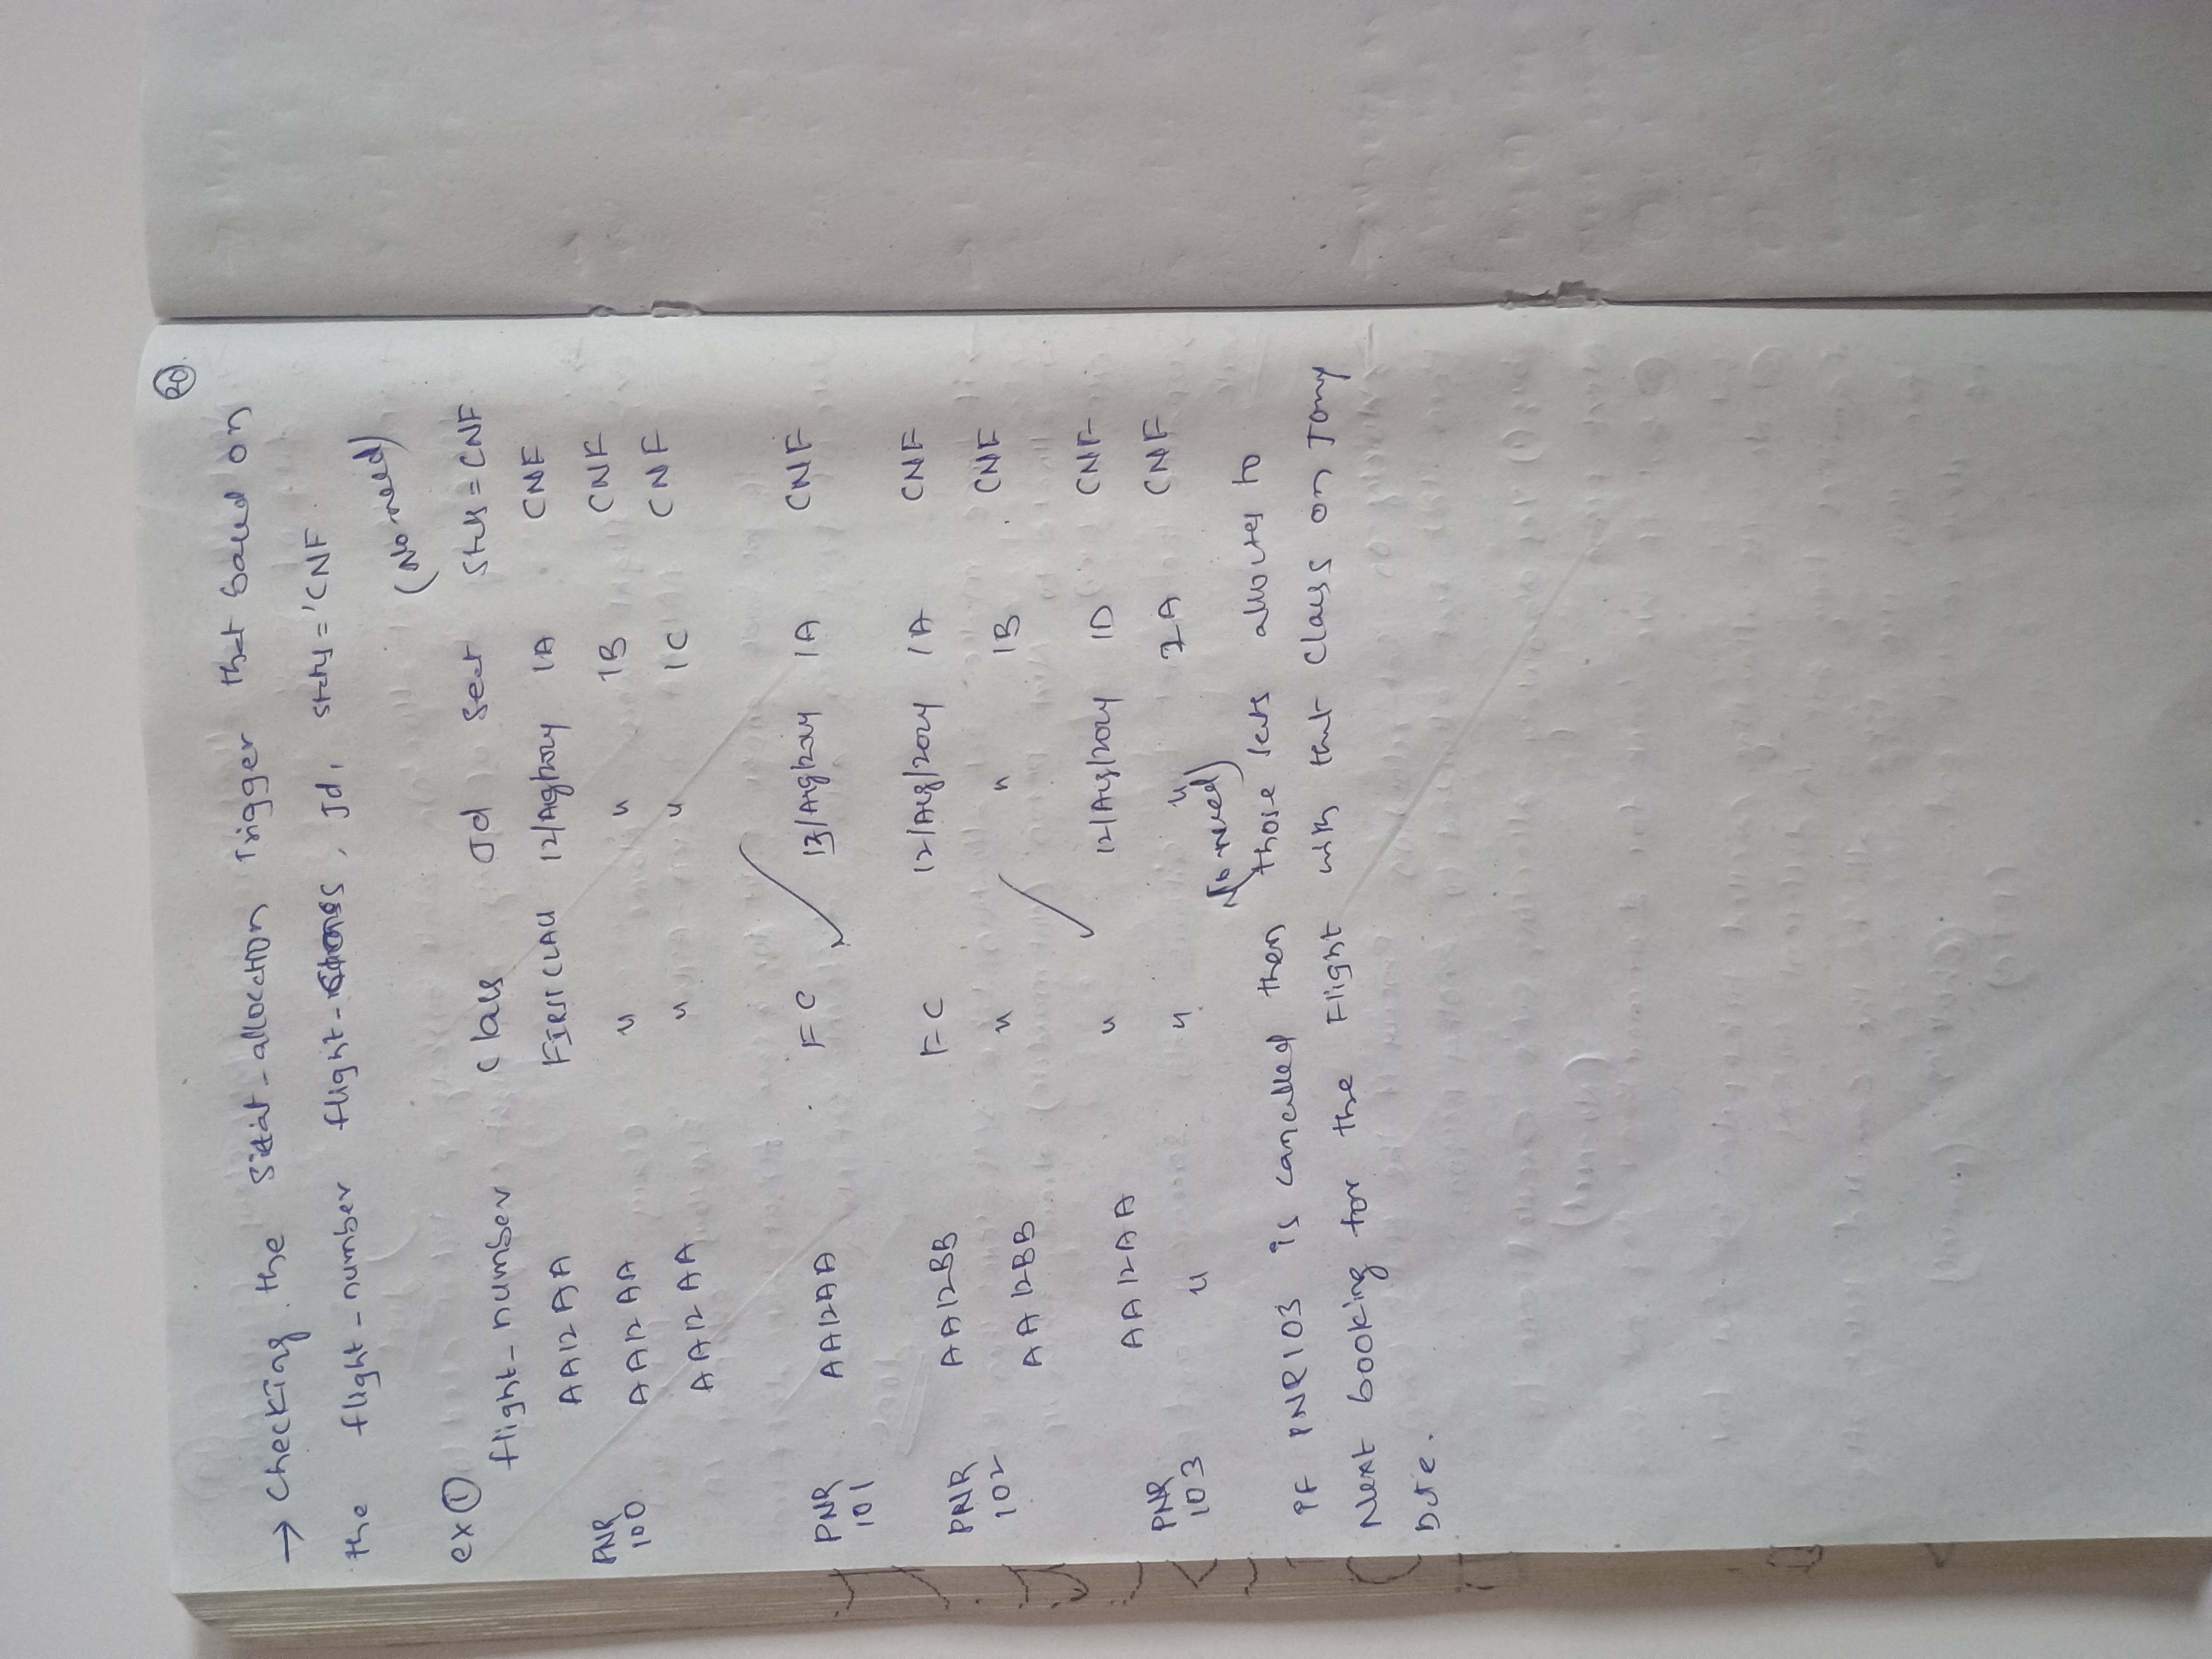 20
→ Checking the Seat-allocation Trigger that based on
the flight-number flight-class, Jd, status='CNF
(No need)
ex ①
flight-number Class Jd Seat Status = CNF
AA12AA FIRST CLASS 12/Aug/2024 1A CNF
PNR 100 AA12AA " " 1B CNF
AA12AA " " 1C CNF
PNR 101 AA12AA FC 13/Aug/2024 1A CNF
PNR 102 AA12BB FC 12/Aug/2024 1A CNF
AA12BB " " 1B CNF
AA12AA " 12/Aug/2024 1D CNF
PNR 103 " " " 2A CNF
(No need)
if PNR103 is cancelled then those seats allocates to
Next booking for the Flight with that Class on Jony
Date.